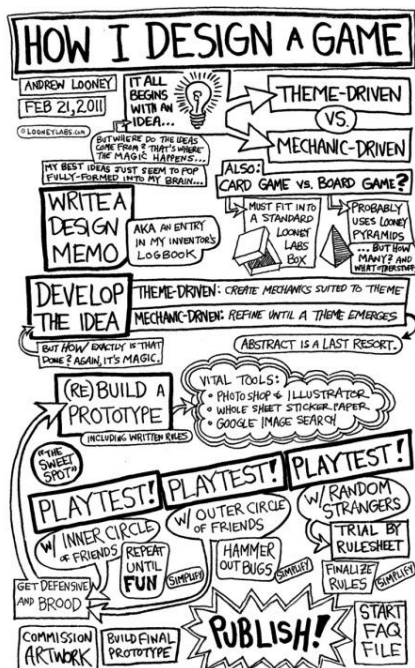 HOW I DESIGN A GAME
ANDREW LOONEY
FEB 21, 2011
© LOONEYLABS.COM
IT ALL
BEGINS
WITH AN
IDEA...
THEME-DRIVEN
VS.
MECHANIC-DRIVEN
BUT WHERE DO THE IDEAS
COME FROM? THAT'S WHERE
THE MAGIC HAPPENS...
MY BEST IDEAS JUST SEEM TO POP
FULLY-FORMED INTO MY BRAIN...
ALSO:
CARD GAME VS. BOARD GAME?
MUST FIT INTO
A STANDARD
LOONEY
LABS
BOX
PROBABLY
USES LOONEY
PYRAMIDS
... BUT HOW
MANY? AND
WHAT OTHER STUFF
WRITE A
DESIGN
MEMO
AKA AN ENTRY
IN MY INVENTOR'S
LOGBOOK
DEVELOP
THE IDEA
THEME-DRIVEN: CREATE MECHANICS SUITED TO THEME
MECHANIC-DRIVEN: REFINE UNTIL A THEME EMERGES
BUT HOW EXACTLY IS THAT
DONE? AGAIN, IT'S MAGIC.
ABSTRACT IS A LAST RESORT.
(RE)BUILD A
PROTOTYPE
INCLUDING WRITTEN RULES
VITAL TOOLS:
• PHOTOSHOP & ILLUSTRATOR
• WHOLE SHEET STICKER PAPER
• GOOGLE IMAGE SEARCH
"THE
SWEET
SPOT"
PLAYTEST!
W/ INNER CIRCLE
OF FRIENDS
REPEAT
UNTIL
FUN
SIMPLIFY
PLAYTEST!
W/ OUTER CIRCLE
OF FRIENDS
HAMMER
OUT BUGS
SIMPLIFY
PLAYTEST!
W/ RANDOM
STRANGERS
TRIAL BY
RULESHEET
FINALIZE
RULES
SIMPLIFY
GET DEFENSIVE
AND BROOD
COMMISSION
ARTWORK
BUILD FINAL
PROTOTYPE
PUBLISH!
START
FAQ
FILE